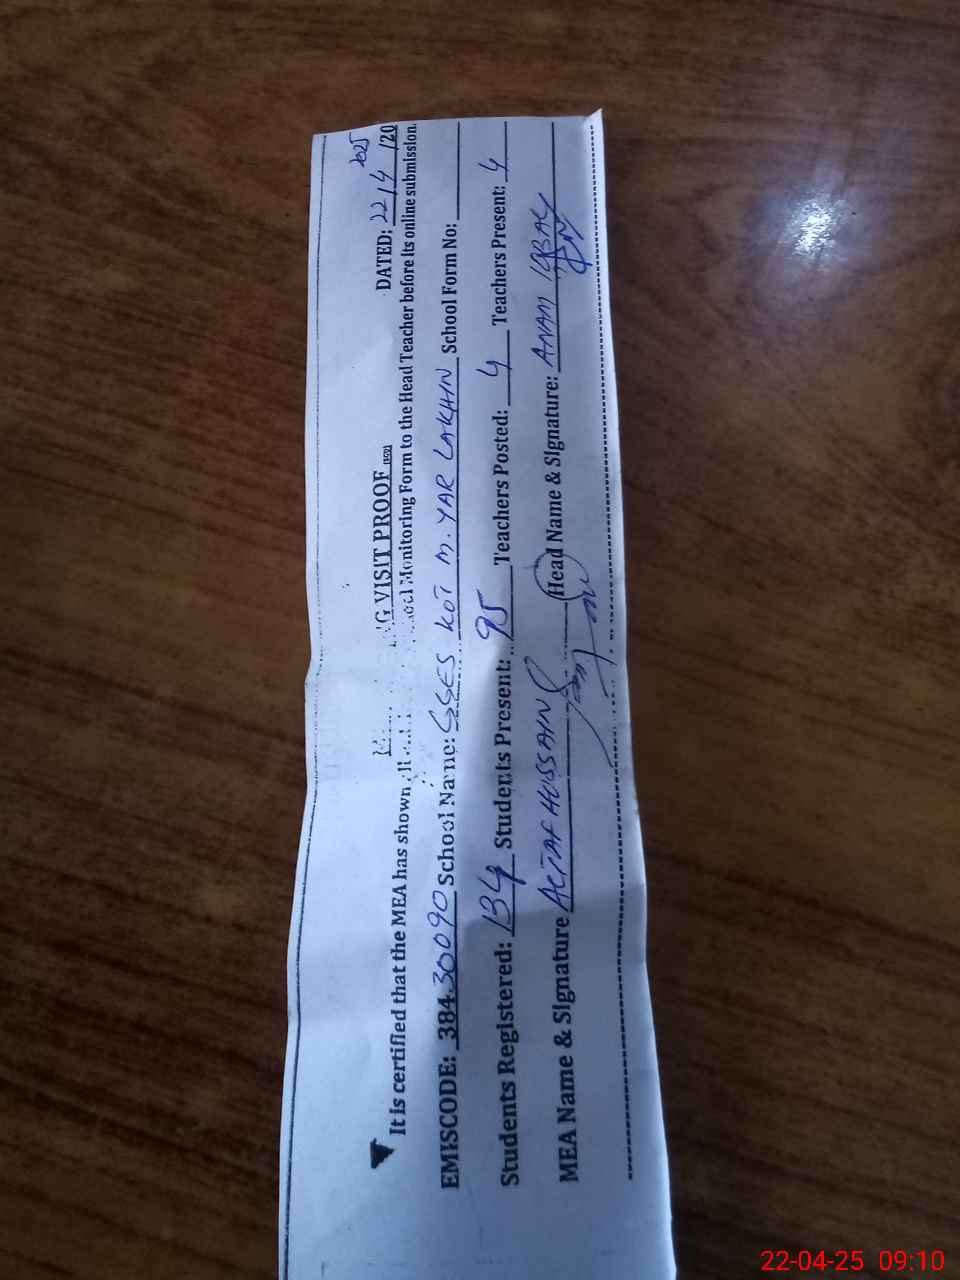 VISIT PROOF
DATED: 22/4/20 2025
It is certified that the MEA has shown Monitoring Form to the Head Teacher before its online submission.
EMISCODE: 384.30090 School Name: GGES KOT M. YAR LAKHIN School Form No:
Students Registered: 134 Students Present: 95 Teachers Posted: 4 Teachers Present: 4
MEA Name & Signature ALTAF HUSSAIN Head Name & Signature: ANAM IQBAL
22-04-25 09:10